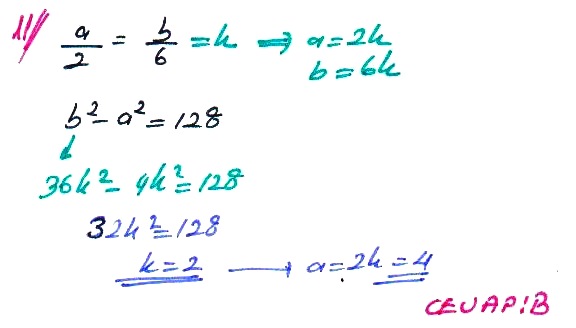 11/ a/2 = b/6 = k ⟹ a=2k
b=6k
b²-a²=128
↓
36k²-4k²=128
32k²=128
k=2 ⟶ a=2k=4
CEVAP:B